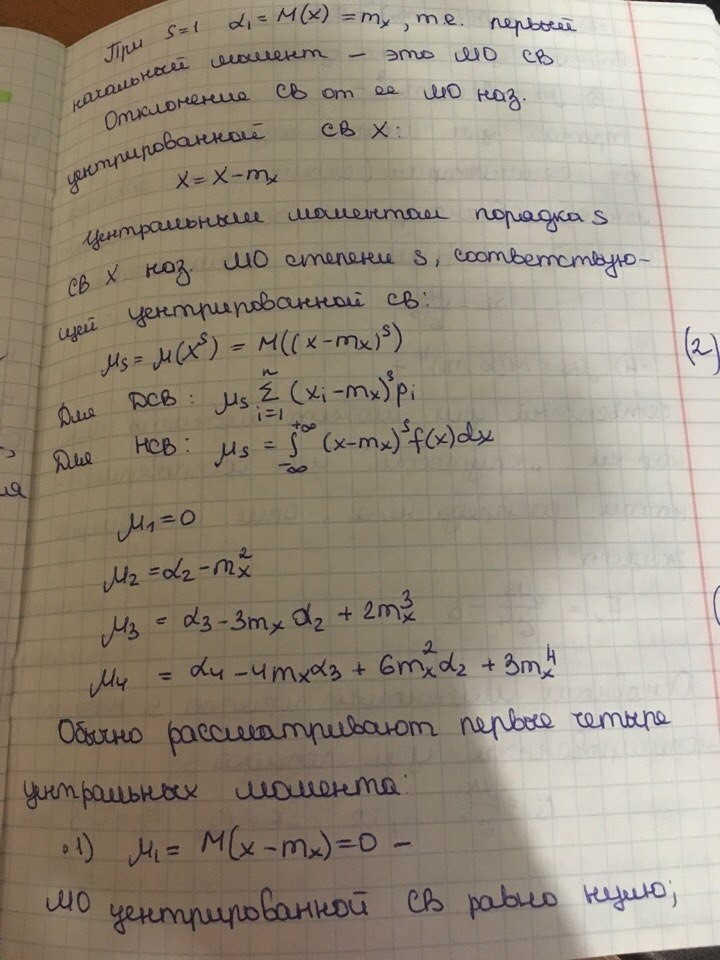 При s=1 α₁ = M(x) = mₓ, т.е. первый
начальный момент – это МО СВ
Отклонение СВ от ее МО наз.
центрированной СВ X:
X = X – mₓ
Центральным моментом порядка s
СВ X наз. МО степени s, соответствую-
щей центрированной СВ:
μₛ = M(Xˢ) = M((x–mₓ)ˢ) (2)
Для ДСВ: μₛ ∑ᵢ₌₁ⁿ (xᵢ–mₓ)ˢpᵢ
Для НСВ: μₛ = ∫₋∞⁺∞ (x–mₓ)ˢf(x)dx
μ₁=0
μ₂ = α₂ – mₓ²
μ₃ = α₃ – 3mₓ α₂ + 2mₓ³
μ₄ = α₄ – 4mₓα₃ + 6mₓ²α₂ + 3mₓ⁴
Обычно рассматривают первые четыре
центральных момента:
1) μ₁ = M(x – mₓ) = 0 –
МО центрированной СВ равно нулю;